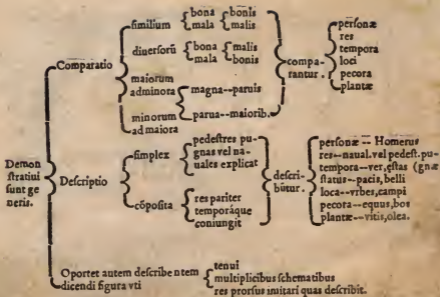 similium bona bonis
mala malis
diuersorū bona malis
mala bonis
Comparatio
maiorum
ad minora
magna--paruis
minorum
ad maiora
parua--maiorib.
compa-
rantur.
personæ
res
tempora
loci
pecora
plantæ
Demon
stratiui
sunt ge
neris.
Descriptio
simplex
pedestres pu-
gnas vel na-
uales explicat
cōposita
res pariter
temporáque
coniungit
descri-
bũtur.
personæ -- Homerus
res--naual.vel pedest.pu-
tempora--ver,æstas (gnæ
status--pacis,belli
loca--vrbes,campi
pecora--equus,bos
plantæ--vitis,olea.
Oportet autem describentem
dicendi figura vti
tenui
multiplicibus schematibus
res prorsus imitari quas describit.